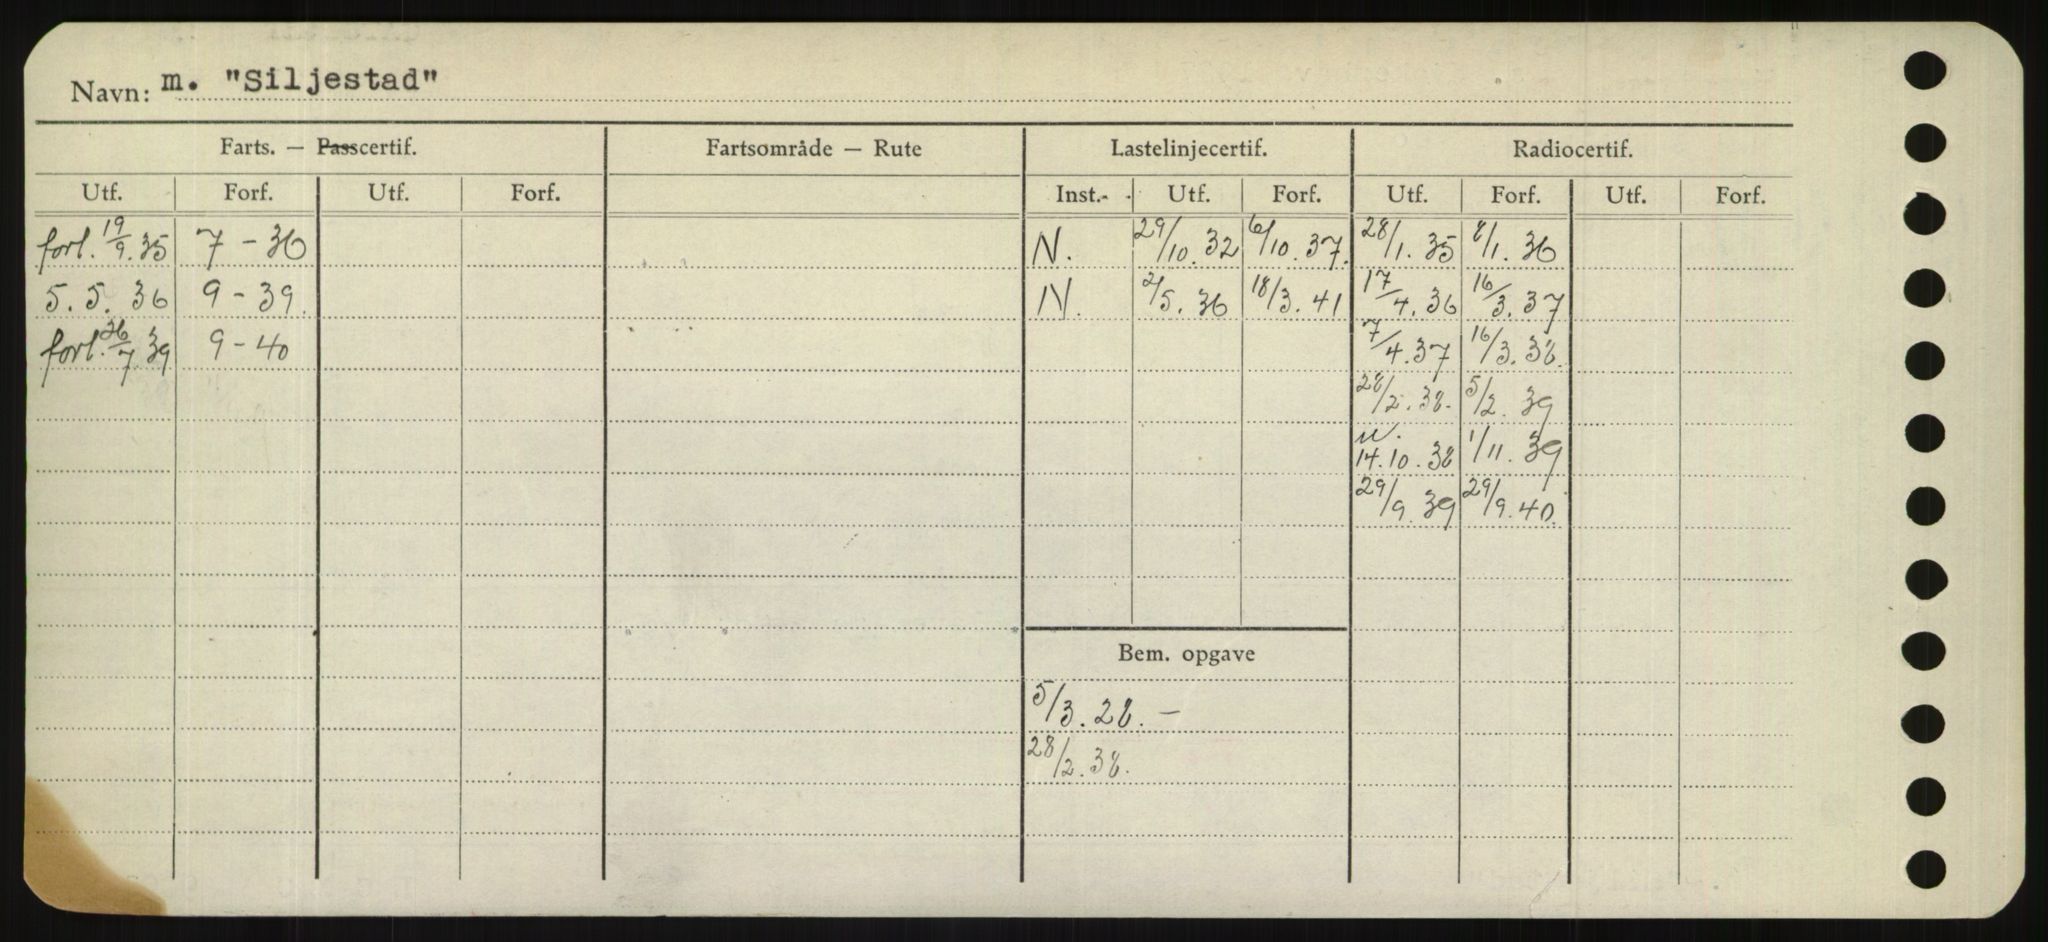 Navn: m. "Siljestad"
Farts. — Passcertif. Fartsområde — Rute Lastelinjecertif. Radiocertif.
Utf. Forf. Utf. Forf. Inst. Utf. Forf. Utf. Forf. Utf. Forf.
forl. 19/9.35 7 - 36 N. 29/10.32 6/10.37. 28/1.35 8/1.36
5.5.36 9 - 39. N. 2/5.36 18/3.41 17/4.36 16/3.37
forl. 26/7.39 9 - 40 7/4.37 16/3.38.
28/2.38. 5/2.39
n.
14.10.38 1/11.39
29/9.39 29/9.40.
Bem. opgave
5/3.28. —
28/2.38.